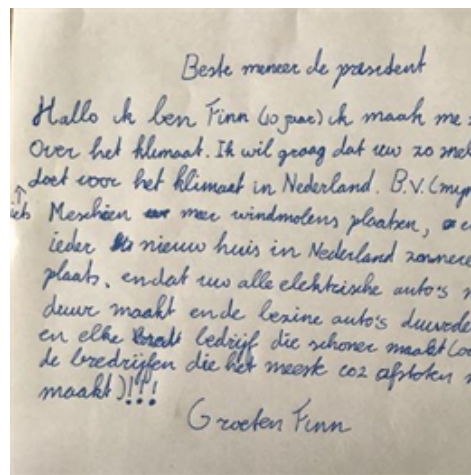 Beste meneer de president
Hallo ik ben Finn (10 jaar) ik maak me
Over het klimaat. Ik wil graag dat uw zo
doet voor het klimaat in Nederland. B.V.
Meschien meer windmolens plaatsen,
ieder nieuw huis in Nederland
plaats. endat uw alle elektrische auto's
duur maakt ende bezine auto's
en elke bedrijf die schoner maakt
de bredrijfen die het meeste co2 afstoten
maakt)!!!
Groeten Finn